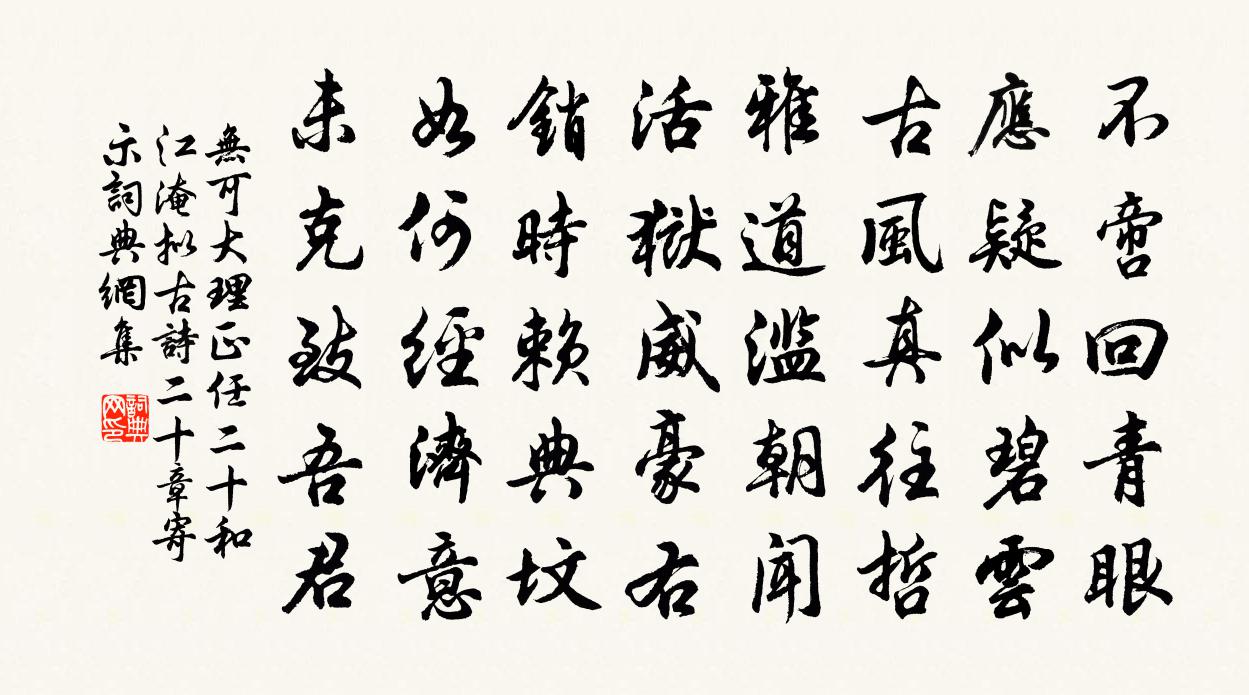 不啻回青眼
應疑似碧雲
古風真往哲
雅道濫朝聞
活獄威豪右
銷時賴典墳
如何經濟意
未克致吾君
無可大理正任二十和
江淹擬古詩二十章寄
示詞典網集
詞典网印